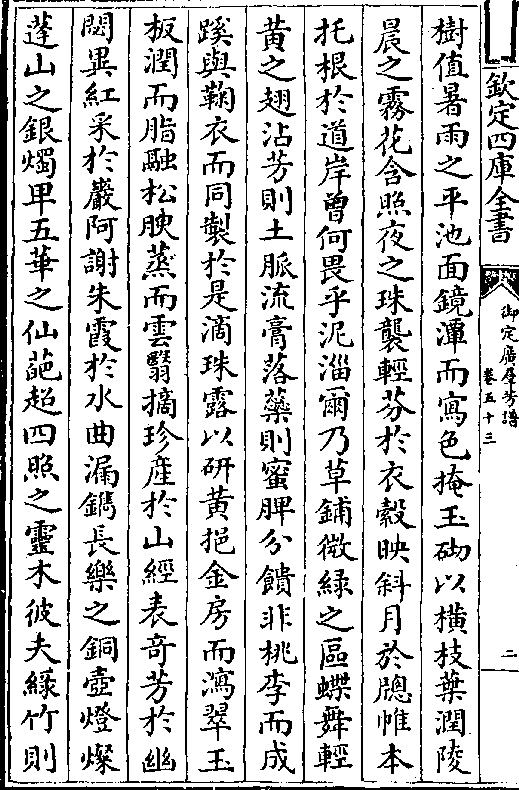 欽定四庫全書
御定廣群芳譜
卷五十三
二
樹值暑雨之平池面鏡渾而寫色掩玉砌以橫枝葉潤陵
晨之霧花含照夜之珠襲輕芬於衣縠映斜月於牕帷本
托根於道岸曾何畏乎泥淄爾乃草鋪微緑之區蝶舞輕
黄之翅沾芳則土脈流膏落蘂則蜜脾分饋非桃李而成
蹊與鞠衣而同製於是滴珠露以研黄挹金房而瀉翠玉
板潤而脂融松腴蒸而雲翳摘珍産於山經表奇芳於幽
閟異紅采於巖阿謝朱霞於水曲漏鐫長樂之銅壺燈燦
蓬山之銀燭甲五華之仙葩超四照之靈木彼夫緑竹則